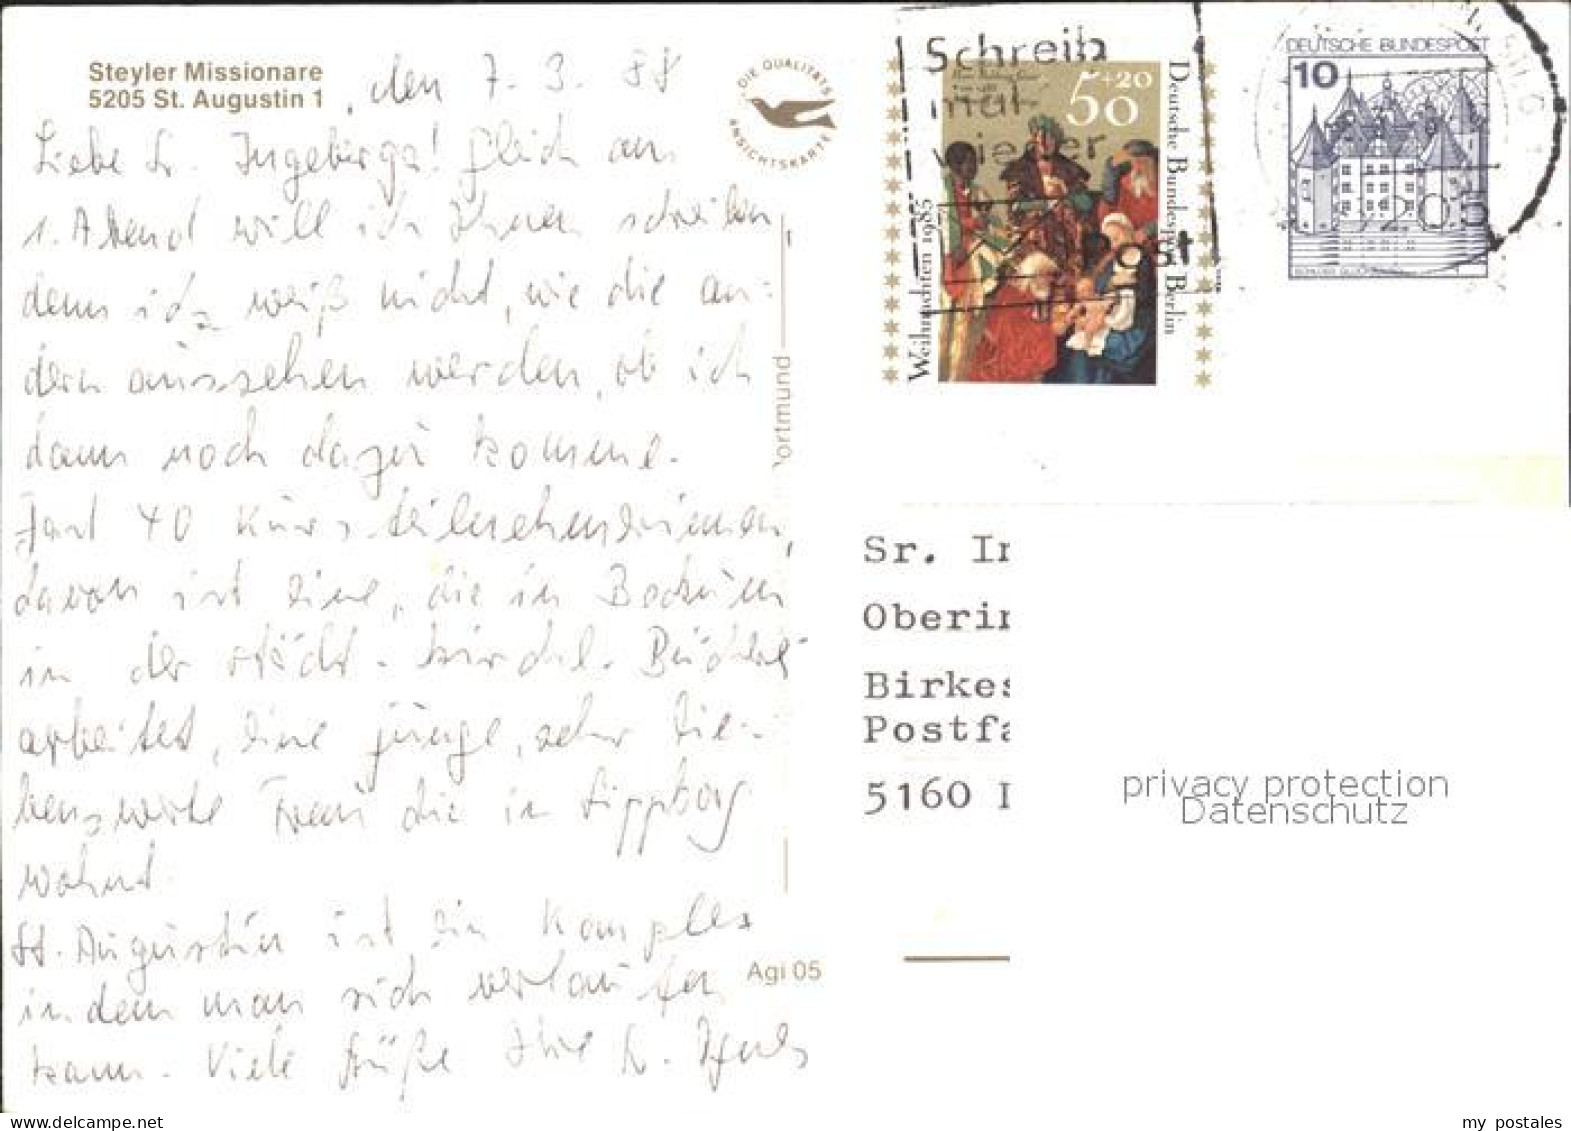 Steyler Missionare
5205 St. Augustin 1
, den 7. 3. 88
Liebe Sr. Ingeberga! Gleich am
1. Abend will ich Ihnen schreiben,
denn ich weiß nicht, wie die an-
dern aussehen werden, ob ich
dann noch dazu komme.
Fast 40 Kursteilnehmerinnen,
davon ist eine, die in Bochum
in der städt. Bücherei
arbeitet, eine junge, sehr lie-
benswerte Frau die in Lippborg
wohnt.
St. Augustin ist ein Komplex
in dem man sich verlaufen
kann. Viele Grüße Ihre Sr.
DIE QUALITÄTS
ANSICHTSKARTE
ortmund
Agi 05
Schreib
mal
wieder
Post
50+20
Weihnachten 1985
Deutsche Bundespost Berlin
DEUTSCHE BUNDESPOST
10
5205
Sr. In
Oberin
Birkes
Postfa
5160
privacy protection
Datenschutz
www.delcampe.net
my_postales